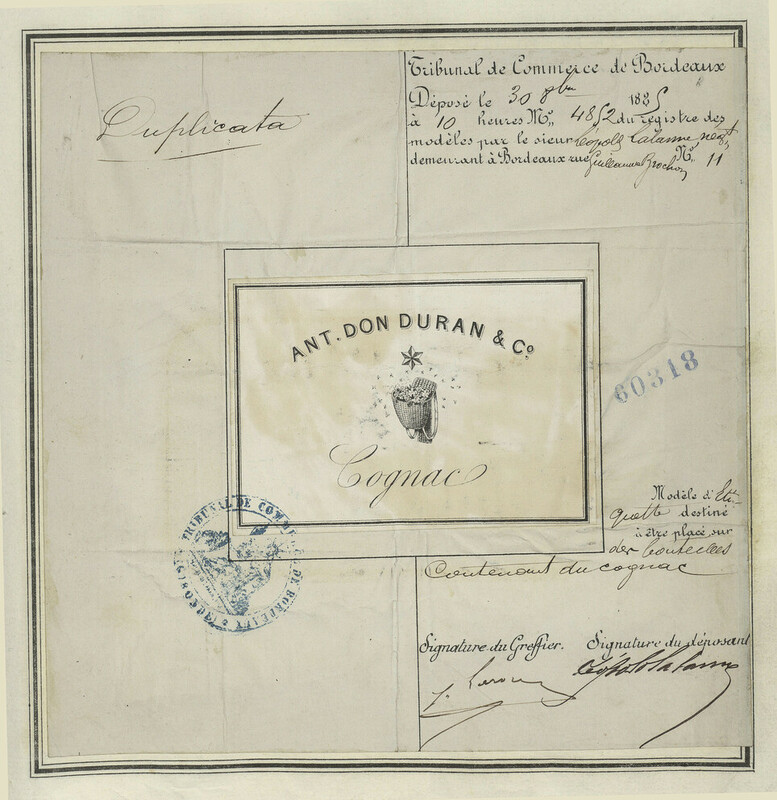 Duplicata
Tribunal de Commerce de Bordeaux
Déposé le 30 8bre 1885
à 10 heures No. 4852 du registre des
modèles par le sieur Léopold Lalanne, negt,
demeurant à Bordeaux rue Guillaume Brochon No. 11
ANT. DON DURAN & Co.
Cognac
60318
Modèle d'Eti-
quette destiné
à être placé sur
des bouteilles
Contenant du cognac
TRIBUNAL DE COMMERCE DE BORDEAUX
Signature du Greffier. Signature du déposant
Léopold Lalanne